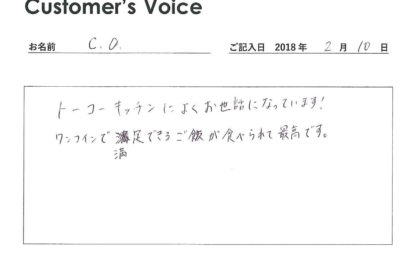 Customer's Voice
お名前 C.O. ご記入日 2018年 2月 10日
トーコーキッチンによくお世話になっています!
ワンコインで満足できるご飯が食べられて最高です。
満